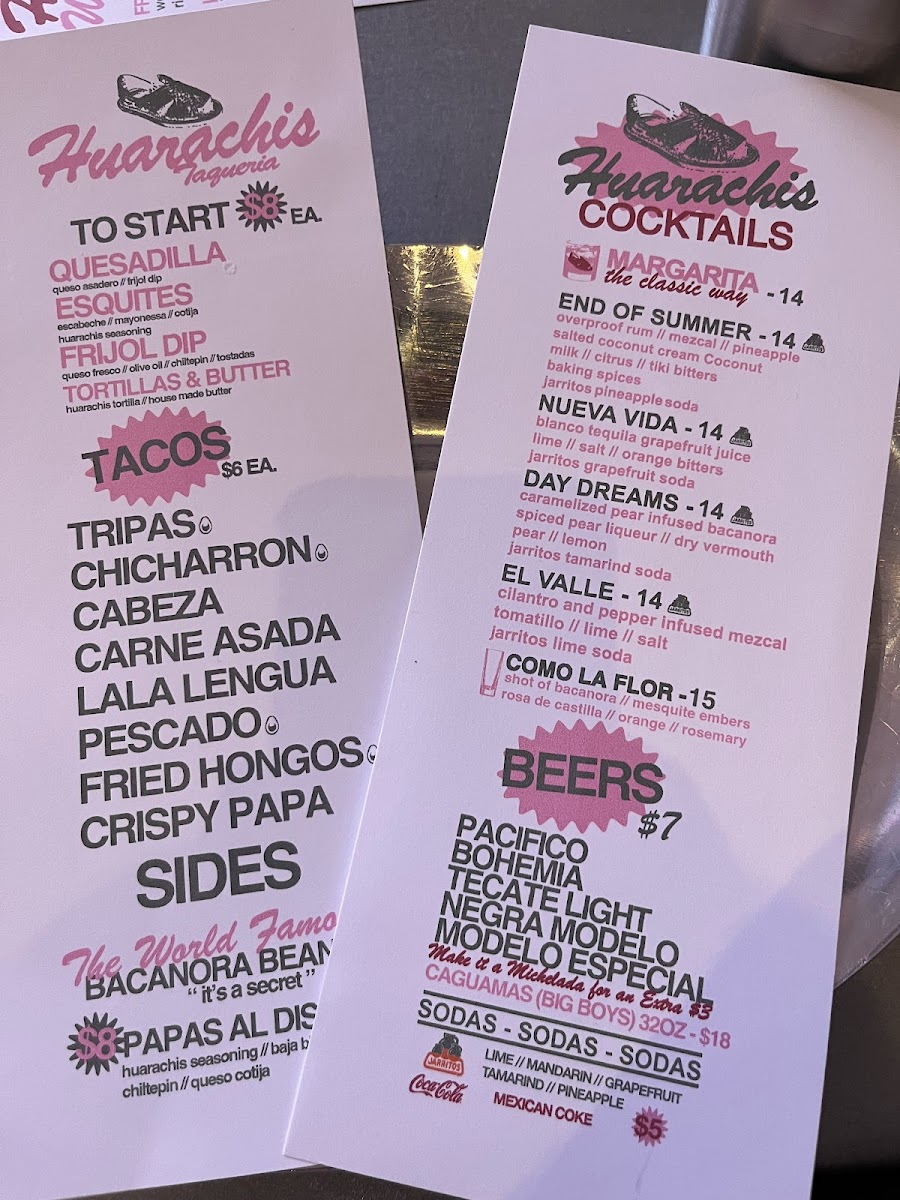 FR
Huarachis
Taqueria
TO START $8 EA.
QUESADILLA
queso asadero // frijol dip
ESQUITES
escabeche // mayonessa // cotija
huarachis seasoning
FRIJOL DIP
queso fresco // olive oil // chiltepin // tostadas
TORTILLAS & BUTTER
huarachis tortilla // house made butter
TACOS
$6 EA.
TRIPAS
CHICHARRON
CABEZA
CARNE ASADA
LALA LENGUA
PESCADO
FRIED HONGOS
CRISPY PAPA
SIDES
The World Famo
BACANORA BEAN
"it's a secret"
$8 PAPAS AL DIS
huarachis seasoning // baja b
chiltepin // queso cotija
Huarachis
COCKTAILS
MARGARITA
the classic way - 14
END OF SUMMER - 14
overproof rum // mezcal // pineapple
salted coconut cream Coconut
milk // citrus // tiki bitters
baking spices
jarritos pineapple soda
NUEVA VIDA - 14
blanco tequila grapefruit juice
lime // salt // orange bitters
jarritos grapefruit soda
DAY DREAMS - 14
caramelized pear infused bacanora
spiced pear liqueur // dry vermouth
pear // lemon
jarritos tamarind soda
EL VALLE - 14
cilantro and pepper infused mezcal
tomatillo // lime // salt
jarritos lime soda
COMO LA FLOR - 15
shot of bacanora // mesquite embers
rosa de castilla // orange // rosemary
BEERS
$7
PACIFICO
BOHEMIA
TECATE LIGHT
NEGRA MODELO
MODELO ESPECIAL
Make it a Michelada for an Extra $3
CAGUAMAS (BIG BOYS) 32OZ - $18
SODAS - SODAS - SODAS
JARRITOS
LIME // MANDARIN // GRAPEFRUIT
TAMARIND // PINEAPPLE
Coca-Cola
MEXICAN COKE
$5